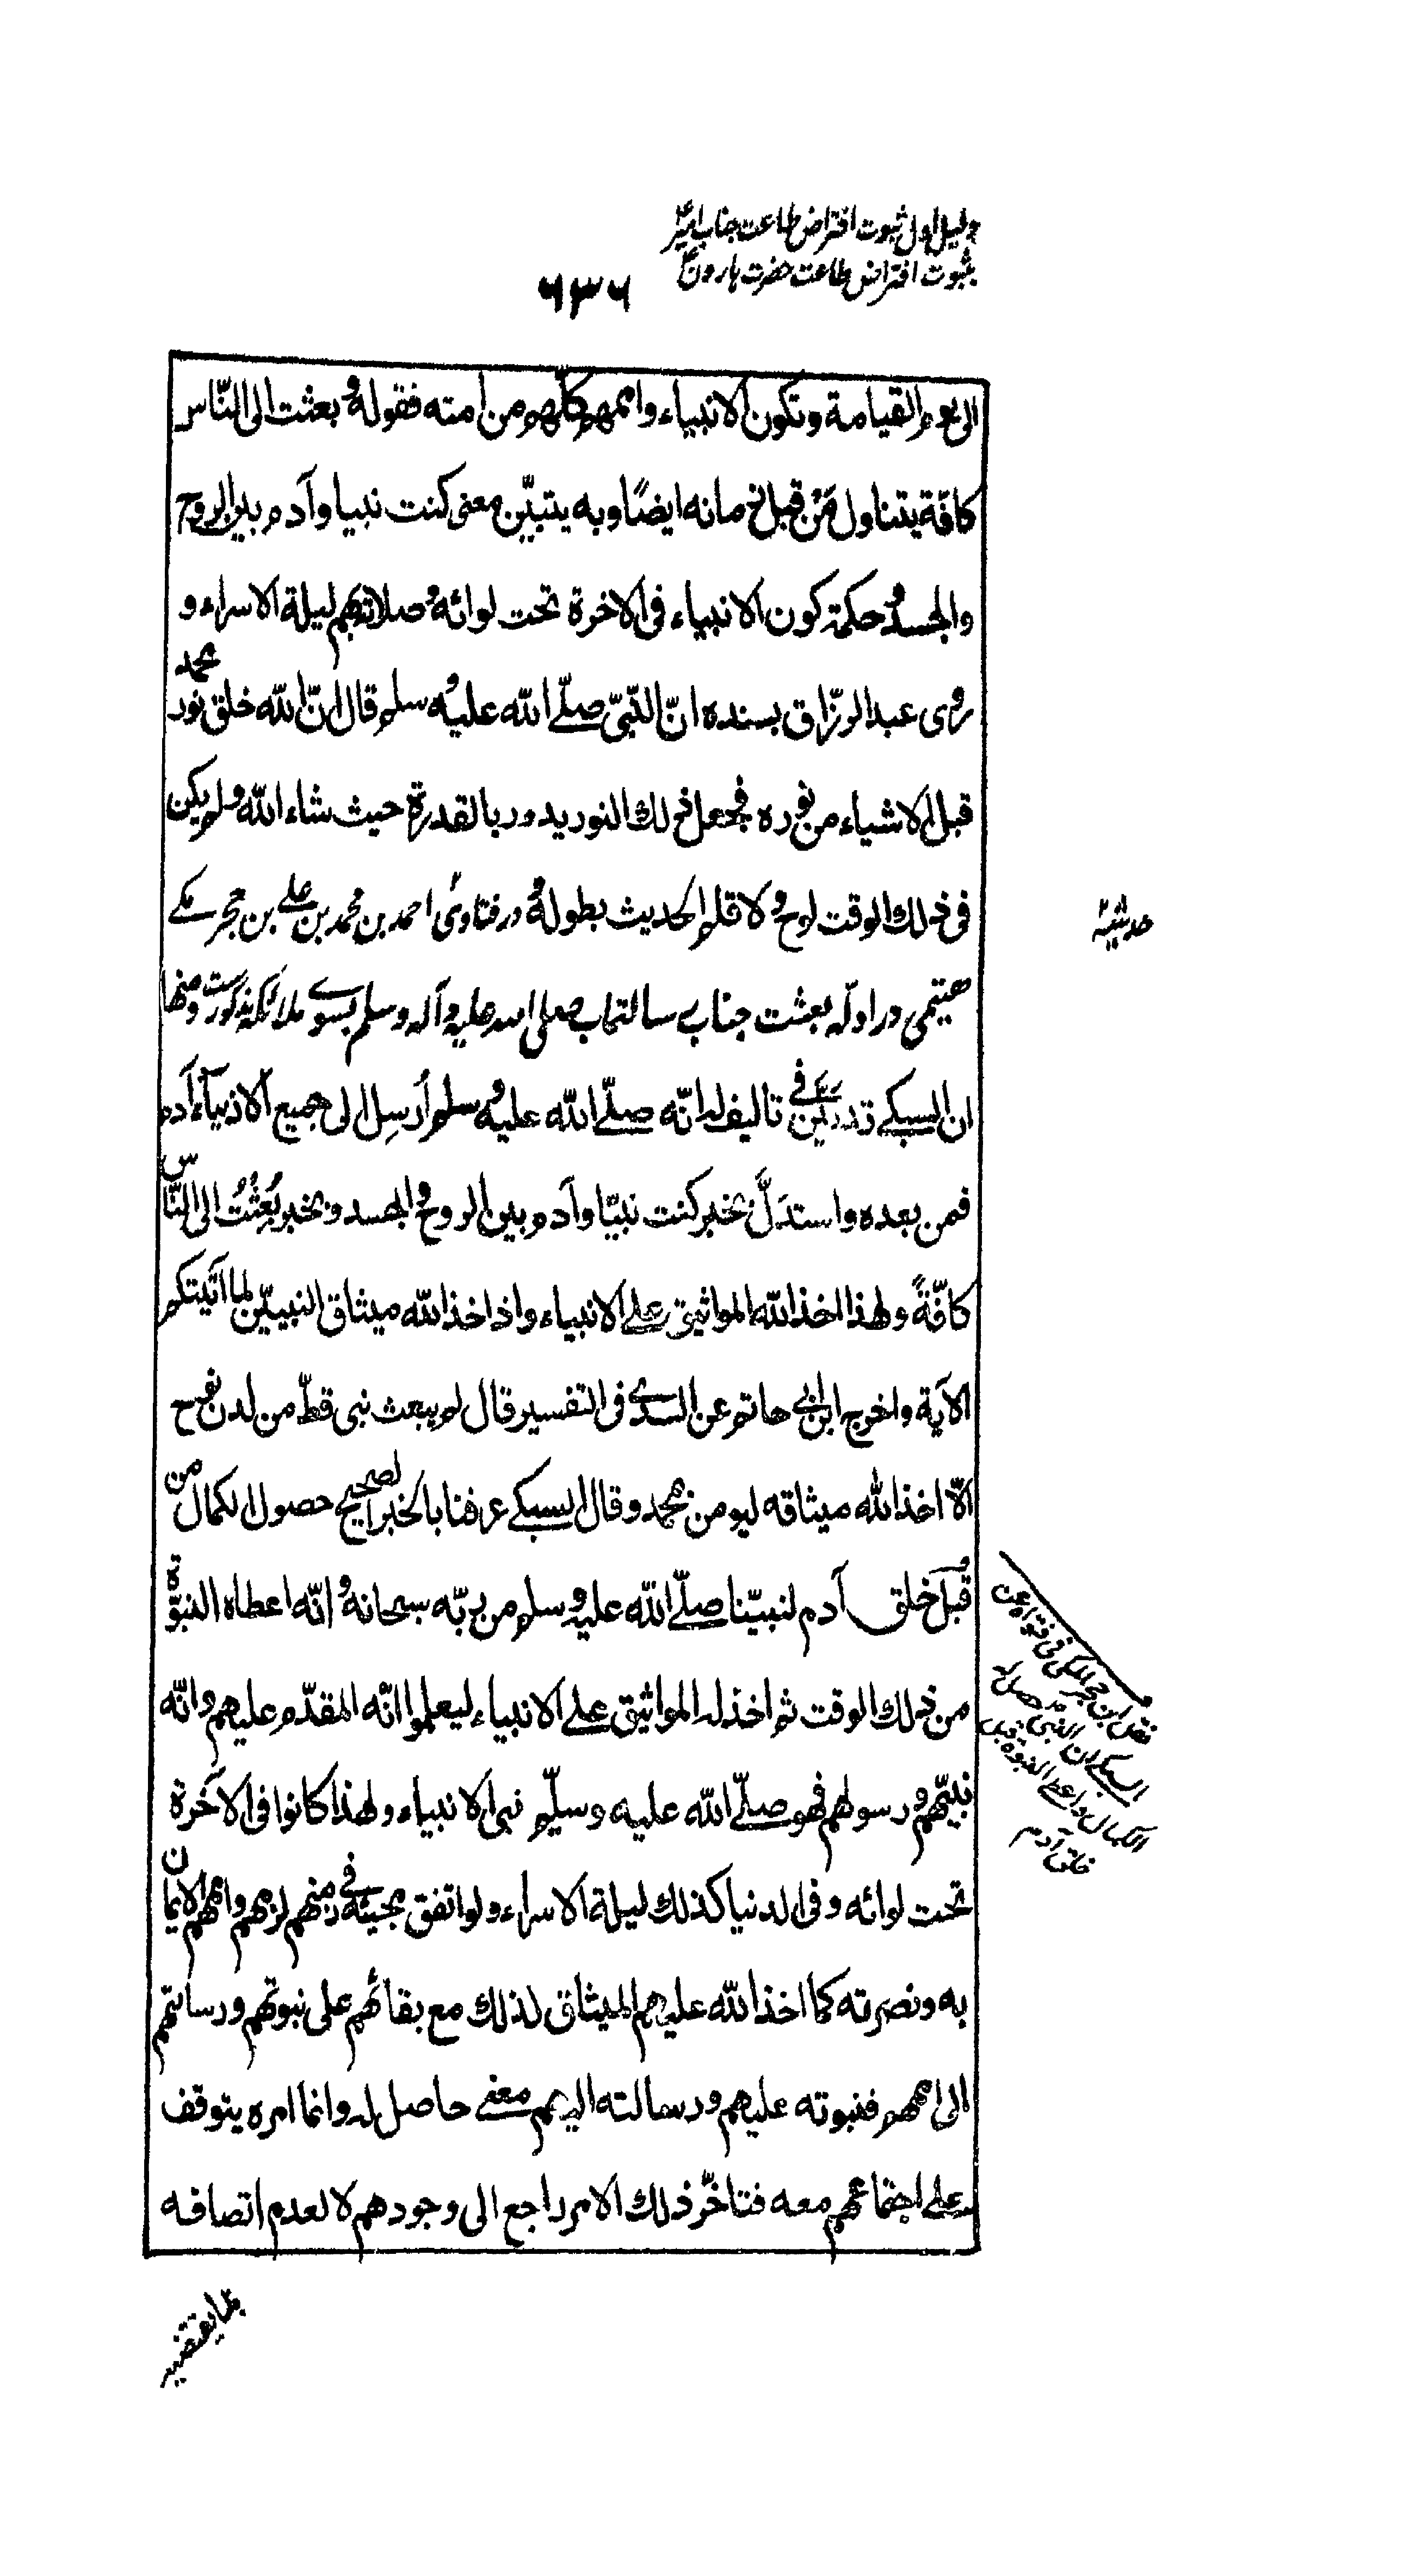 دلیل اول ثبوت افتراض طاعت جناب امیرؑ
بثبوت افتراض طاعت حضرت هارونؑ
۶۳۶
الی یوم القیامة وتکون الانبیاء واممهم کلّهم من امته فقوله و بعثت الی النّاس
کافّة یتناول مَنْ قبل زمانه ایضًا وبه یتبیّن معنی کنت نبیا وآدم بین الروح
والجسد و حکمة کون الانبیاء فی الاخرة تحت لوائه و صلاته بهم لیلة الاسراء و
روی عبد الرزّاق بسنده انّ النّبیّ صلّے الله علیه و سلم قال انّ الله خلق نور محمد
قبل الاشیاء من نوره فجعل ذلك النور یدور بالقدرة حیث شاء الله ولم یکن
فی ذلك الوقت لوح و لا قلم الحدیث بطوله و در فتاوئ احمد بن محمد بن علے بن حجر مکے
حدیثیہ
هیتمی در ادلّه بعثت جناب رسالتمآب صلی الله علیه وآله وسلم بسوے ملائکه مذکورست ومنها
ان السبکے قد بیّن فی تالیف له انّه صلّے الله علیه و سلم اُرسِل الی جمیع الانبیآء آدم
فمن بعده واستدَلَّ بخبر کنت نبیّا وآدم بین الروح و الجسد و بخبر بُعِثْتُ الی النّاس
کافّةً ولهذا اخذ الله المواثیق علے الانبیاء واذ اخذ الله میثاق النبیین لما آتیتکم
الآیة واخرج ابن ابی حاتم عن السدے فی التفسیر قال لم یبعث نبی قطّ من لدن نوح
الّا اخذ الله میثاقه لیومنن بمحمد وقال السبکے عرفنا بالخبر الصحیح حصول الکمال من
قبل خلق آدم لنبیّنا صلّے الله علیه و سلم من ربّه سبحانه و انّه اعطاه النبوّة
من ذلك الوقت ثم اخذ له المواثیق علے الانبیاء لیعلموا انّه المقدّم علیهم و انّه
نبیّهم و رسولهم فهو صلّے الله علیه وسلّم نبی الانبیاء ولهذا کانوا فی الآخرة
تحت لوائه وفی الدنیا کذلك لیلة الاسراء ولو اتفق مجیئه فی زمنهم لزمهم واممهم الایمان
به ونصرته کما اخذ الله علیهم المیثاق لذلك مع بقائهم علی نبوتهم ورسالتهم
الی اممهم فنبوته علیهم ورسالته الیهم معنے حاصل له وانما امره یتوقف
علے اجتماعهم معه فتاخّر ذلك الامر راجع الی وجودهم لا لعدم اتصافه
نقل ابن حجر المکی فی فتواه عن
السبکے ان النبی حصل له
الکمال واعطے النبوة قبل
خلق آدم
بما یقتضیه